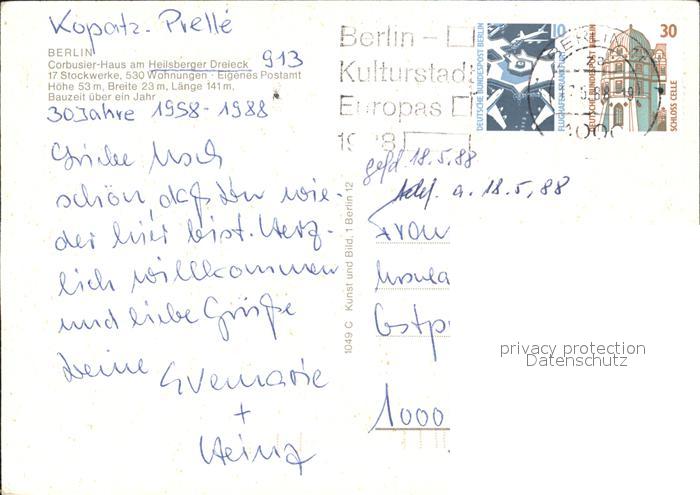 Kopatz-Prellé
BERLIN
Corbusier-Haus am Heilsberger Dreieck 913
17 Stockwerke, 530 Wohnungen · Eigenes Postamt
Höhe 53 m, Breite 23 m, Länge 141 m,
Bauzeit über ein Jahr
30 Jahre 1958-1988
schön daß Du wie-
der hier bist. Herz-
lich willkommen
und liebe Grüße
Deine Evemarie
+
Heinz
1049 C Kunst und Bild, 1 Berlin 12
Berlin –
Kulturstadt
Europas
1988
DEUTSCHE BUNDESPOST BERLIN
10
FLUGHAFEN FRANKFURT
DEUTSCHE BUNDESPOST BERLIN
30
SCHLOSS CELLE
BERLIN
18.5.88
a. 18.5.88
Frau
1000
privacy protection
Datenschutz